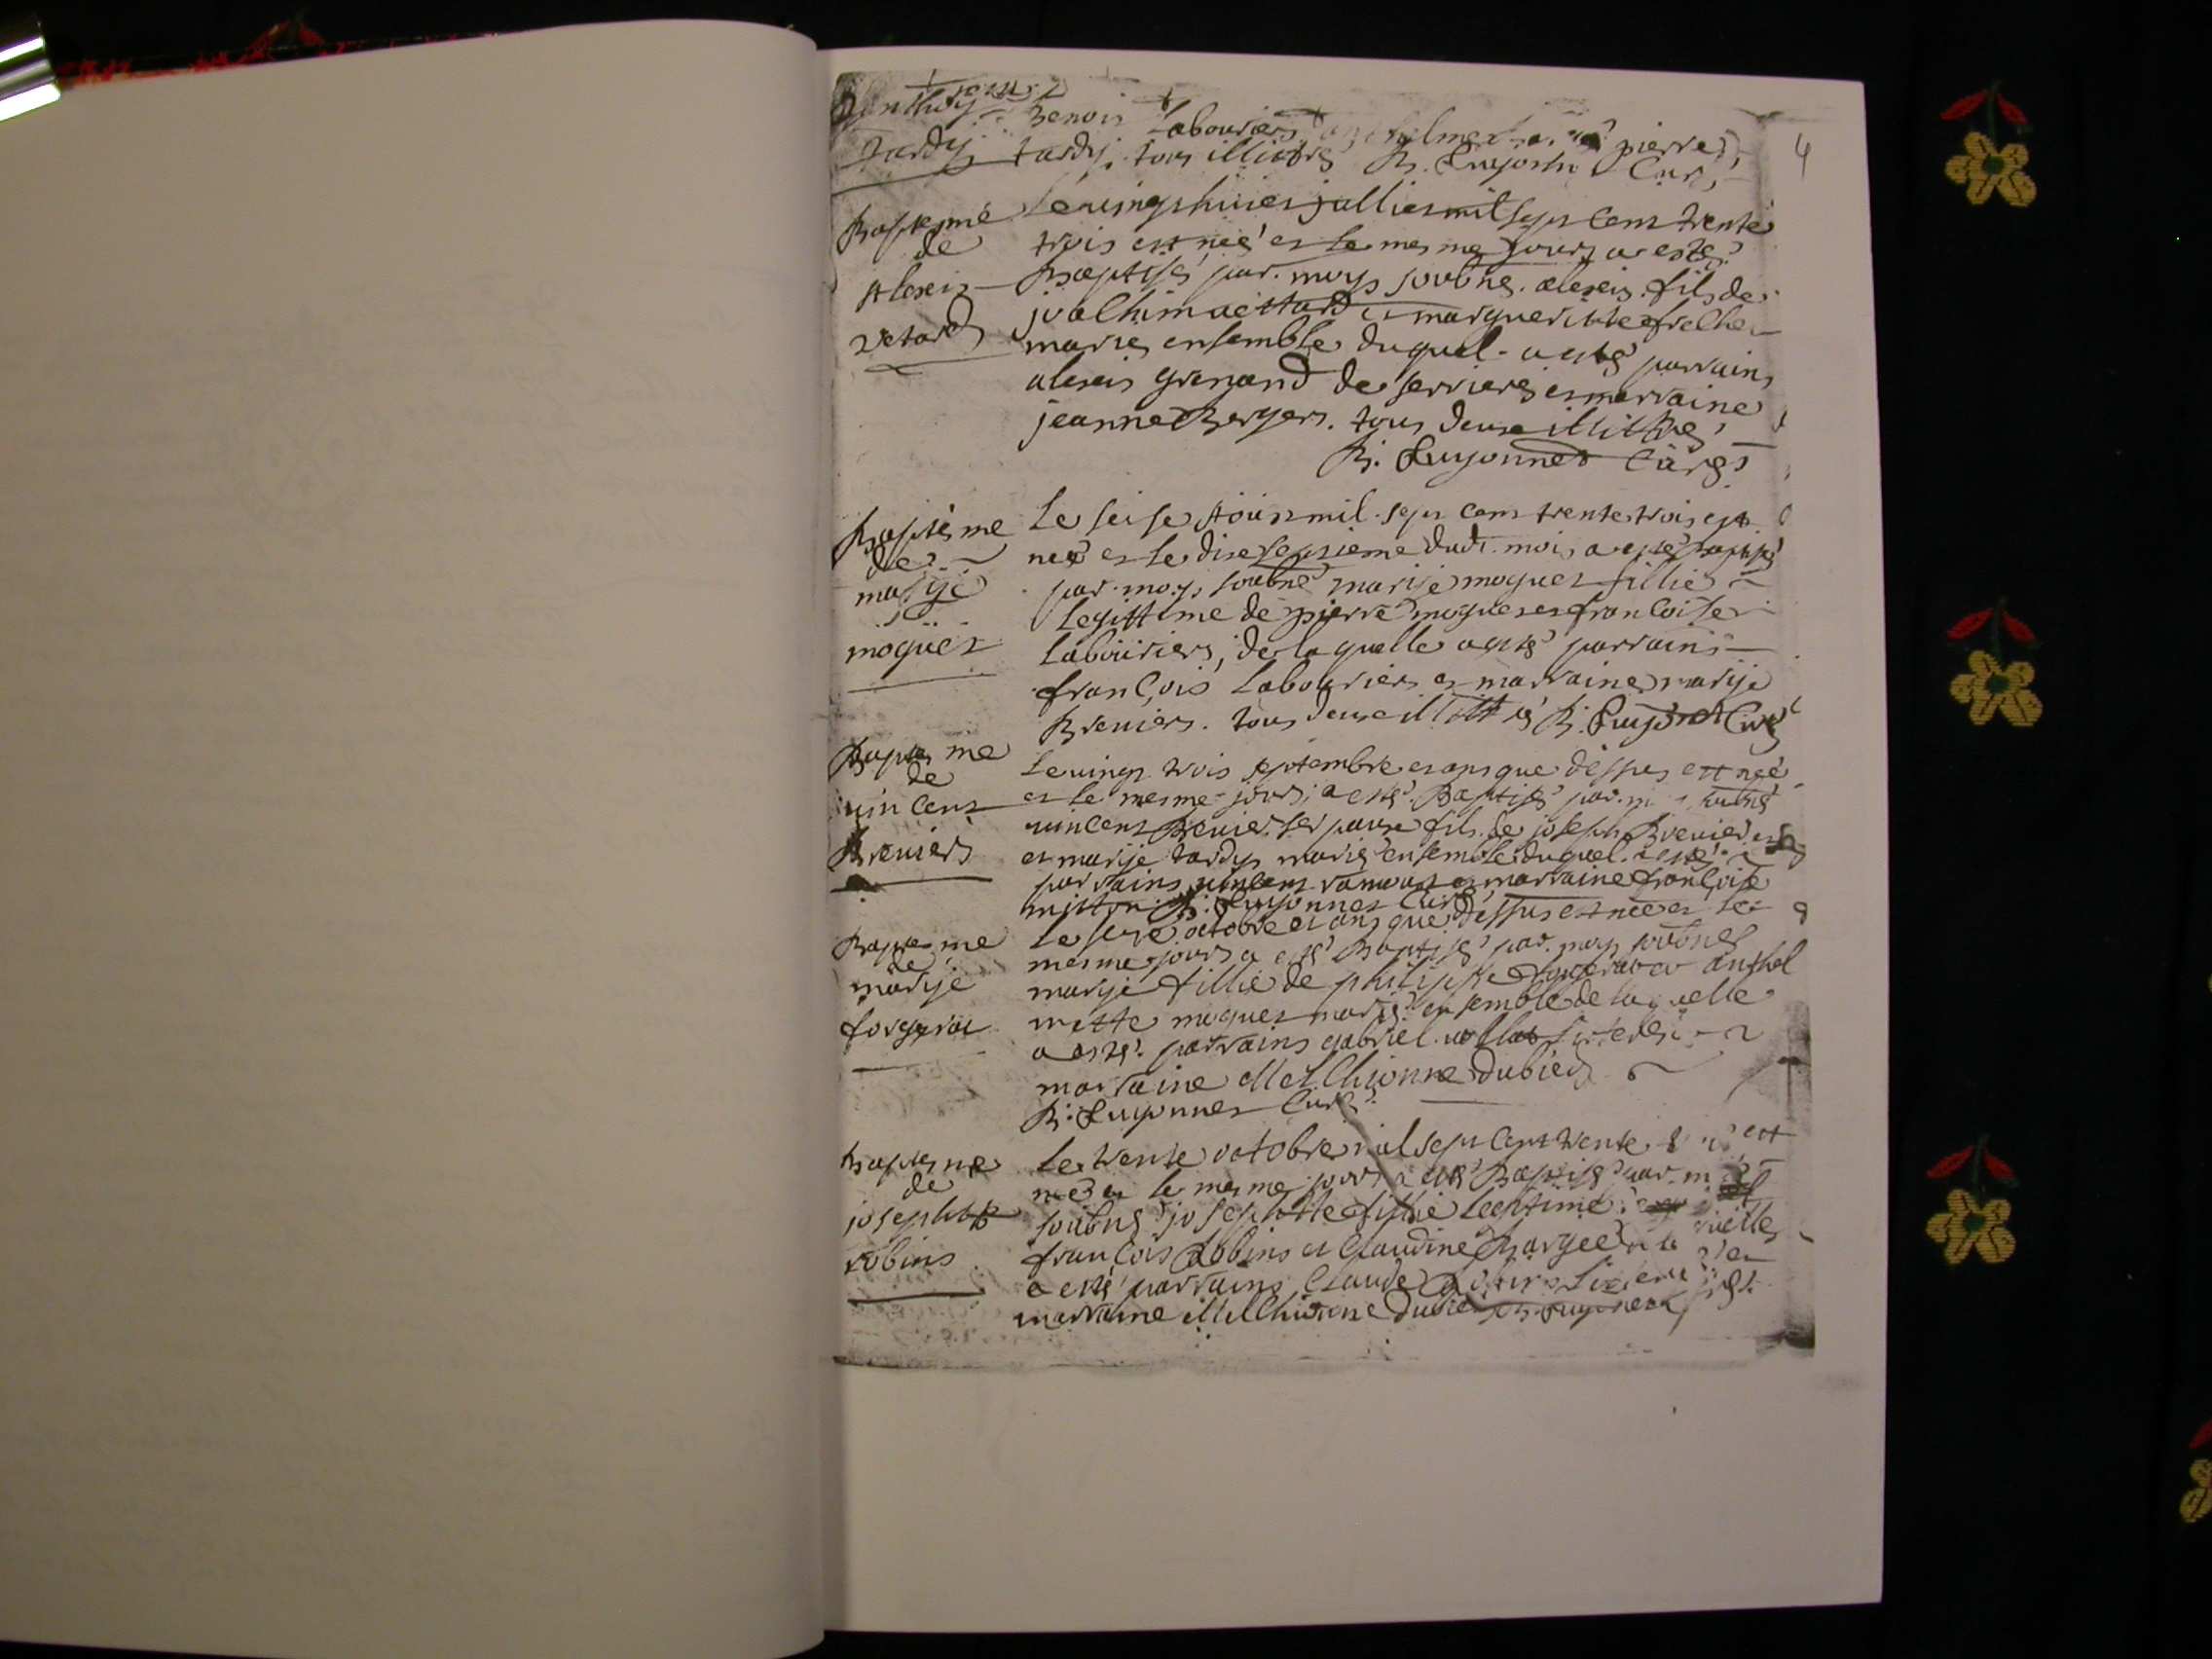 4
Tardy
Benois Labouriers pierre
tardy tous illittrés B. Cure
Baptesme
de
Alexis
vetard
Le vingt huies jullies mil sept cens trente
trois est née es le mesme jours a esté
Baptisé par moys soubné alexis fils de
joachim vettard es marguerithe
mariés ensemble duquel a esté parrains
alexis grenand de serrieres es marraine
jeanne Bergers tous deux illittrés
B. Guyonnet Curé
Baptesme
de
marye
moques
Le seise Aoust mil sept cens trente trois est
neé es le dixe sepsieme dudt mois a esté baptisé
par moys soubné marije moques fillie
Legittime de pierre moques es francoise
Labouriers, de laquelle a esté parrains
françois Labouriers es marraine marije
Breniers tous deux illittrés B. Guyonet Curé
Baptesme
de
vincens
Breniers
Le vings trois septembre es ans que dessus est neé
es le mesme jours a esté Baptisé par soubné
vincens Brenier fils de joseph Brenier
es marije tardys mariés ensemble duquel a esté
parrains vincens es marraine françoise
B. Guyonnes Curé
Baptesme
de
marije
forgerat
Le octobre es ans que dessus est neé es le
mesme jours a esté Baptisé par moys soubné
marije fillie de philippe anthel
mette moques mariés ensemble de laquelle
a esté parrains gabriel
marraine Melchionne Dubied
B. Guyonnes Curé
Baptesme
de
josephtte
robins
Le trente octobre mil sept cens trente est
neé es le mesme jours a esté Baptisé par
soubné josephtte fillie Legitime
françois Robins es Claudine
a esté parrains Claude
marraine Melchionne Dubied B. Guyonnet